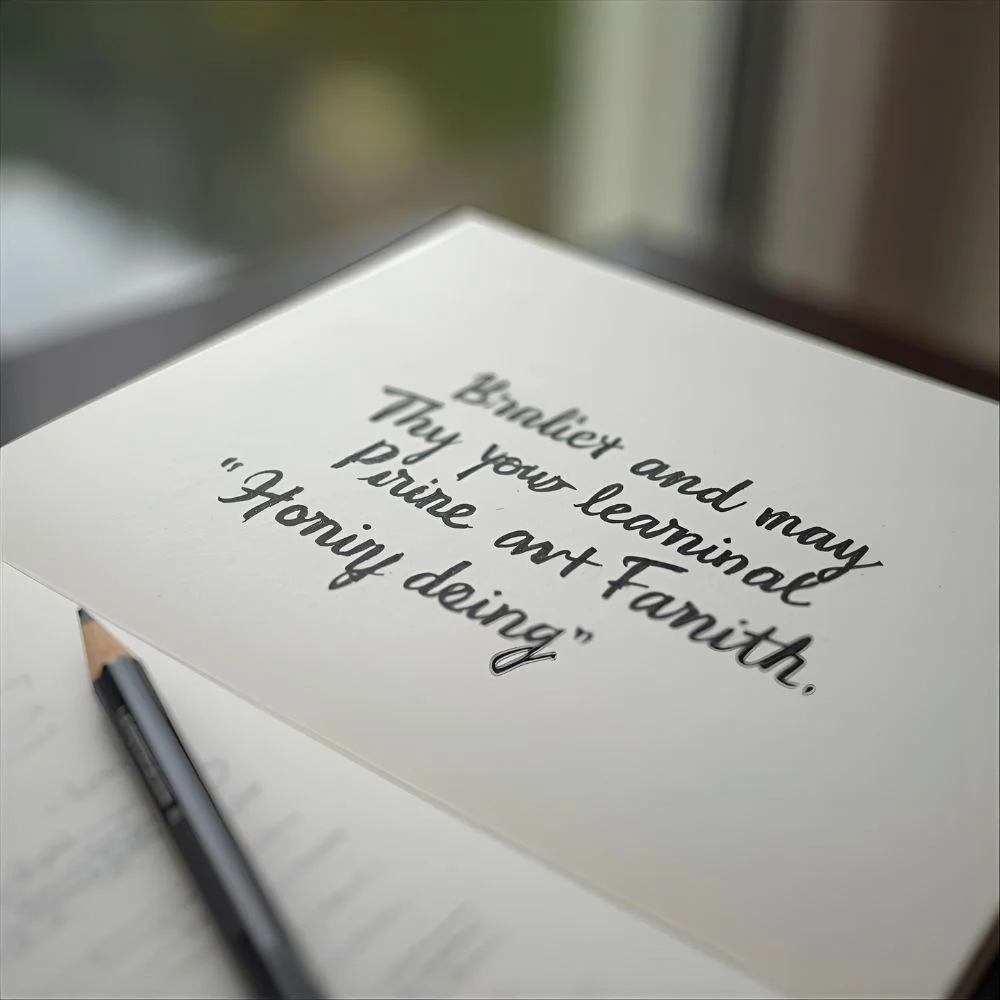 Bralict and may
Thy yow learninal
Pirine art Famith.
"Honiy deing"